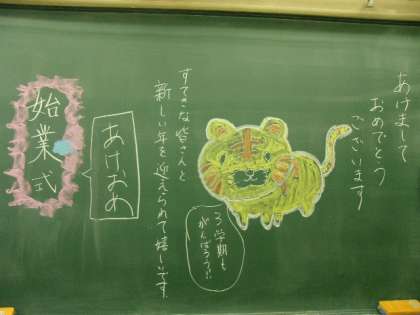 あけまして
おめでとう
ございます
3学期も
がんばろう!!
すてきな皆さんと
新しい年を迎えられて嬉しいです。
あけおめ
始業式